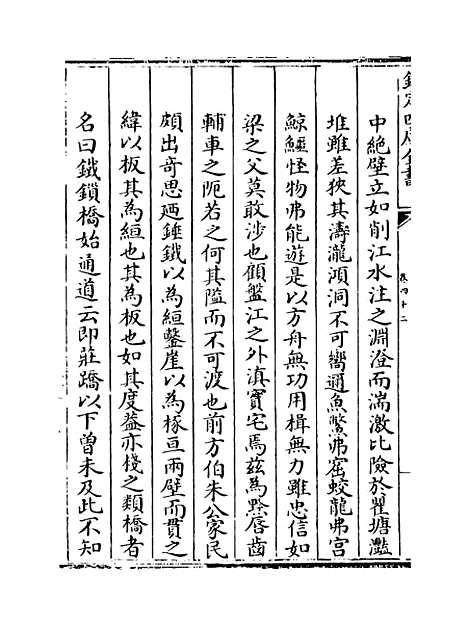 欽定四庫全書
卷四十二
中絶壁立如削江水注之淵澄而湍激比險於瞿塘灩
堆雖差狹其濤瀧澒洞不可嚮通魚鱉弗窟蛟龍弗宫
鯨鱷怪物弗能遊是以方舟無功用楫無力雖忠信如
梁之父莫敢涉也顧盤江之外滇實宅焉兹為㸃唇齒
輔車之阨若之何其隘而不可渡也前方伯朱公家民
頗出奇思廼錘鐵以為絙鑿崖以為椓亘兩壁而貫之
緯以板其為絙也其為板也如其度葢亦棧之類橋者
名曰鐵鎖橋始通道云即莊蹻以下曾未及此不知